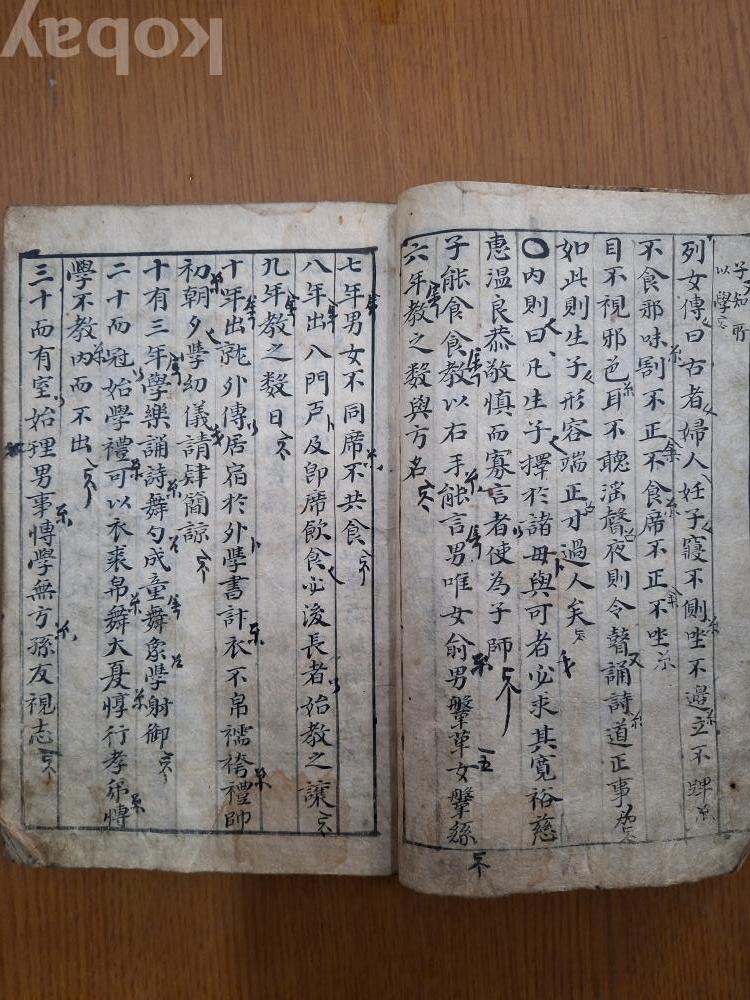 kobay
子知所
以學
列女傳曰古者婦人妊子寢不側坐不邊立不蹕
不食邪味割不正不食席不正不坐
目不視邪色耳不聽淫聲夜則令瞽誦詩道正事
如此則生子形容端正才過人矣
○內則曰凡生子擇於諸母與可者必求其寬裕慈
惠溫良恭敬慎而寡言者使為子師
子能食食教以右手能言男唯女俞男鞶革女鞶絲
六年教之數與方名
七年男女不同席不共食
八年出入門戶及即席飲食必後長者始教之讓
九年教之數日
十年出就外傅居宿於外學書計衣不帛襦袴禮帥
初朝夕學幼儀請肄簡諒
十有三年學樂誦詩舞勺成童舞象學射御
二十而冠始學禮可以衣裘帛舞大夏惇行孝弟博
學不教內而不出
三十而有室始理男事博學無方孫友視志